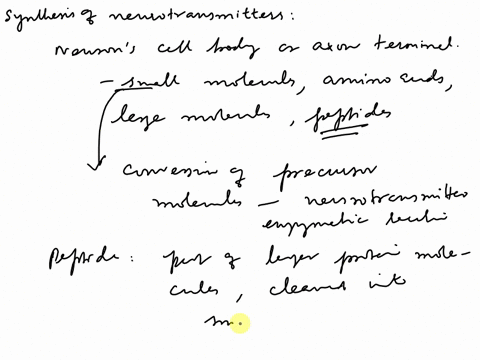 Synthesis of neurotransmitters:
Neuron's cell body or axon terminal.
- small molecules, amino acids,
large molecules, peptides
conversion of precursor
molecules - neurotransmitter
enzymatic
Peptide: part of larger protein mole-
cules, cleaved into
sm